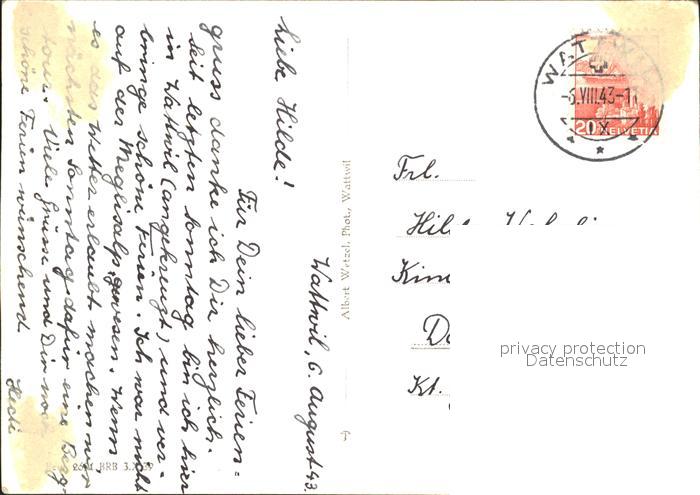 Wattwil, 6. August 43.
Liebe Hilde!
Für Dein lieber Ferien=
gruss danke ich Dir herzlich.
Seit letzten Sonntag bin ich hier
in Wattwil (angekreuzt) und ver-
bringe schöne Ferien. Ich war nicht
auf der Meglisalp gewesen. Wenn
es das Wetter erlaubt machen wir
nächsten Sonntag dafür eine Berg-
tour. Viele Grüsse und Dir noch
schöne Ferien wünschend
Hedi
Albert Wetzel, Phot., Wattwil
BRB 3.
WATTWIL
-6.VIII.43-11
IX
20 HELVETIA
Frl.
Hil
Kin
De
Kt.
privacy protection
Datenschutz